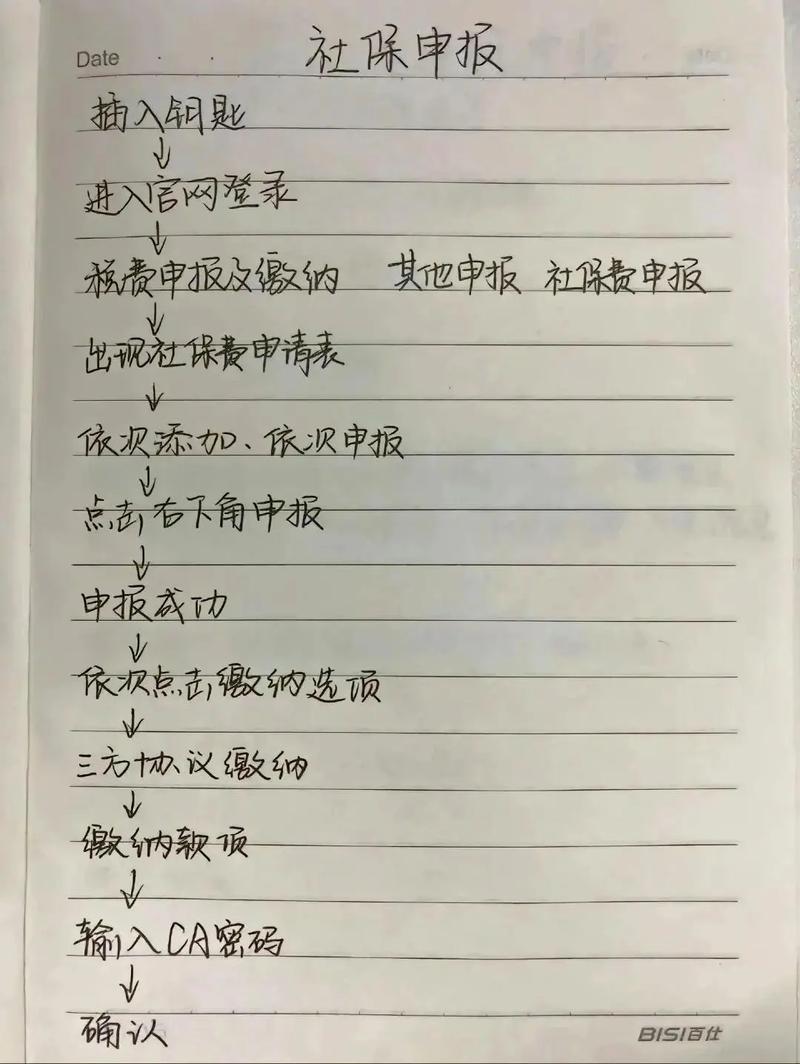 Date
社保申报
插入钥匙
↓
进入官网登录
↓
税费申报及缴纳 其他申报 社保费申报
↓
出现社保费申请表
↓
依次添加、依次申报
↓
点击右下角申报
↓
申报成功
↓
依次点击缴纳选项
↓
三方协议缴纳
↓
缴纳款项
↓
输入CA密码
↓
确认
BISI百仕